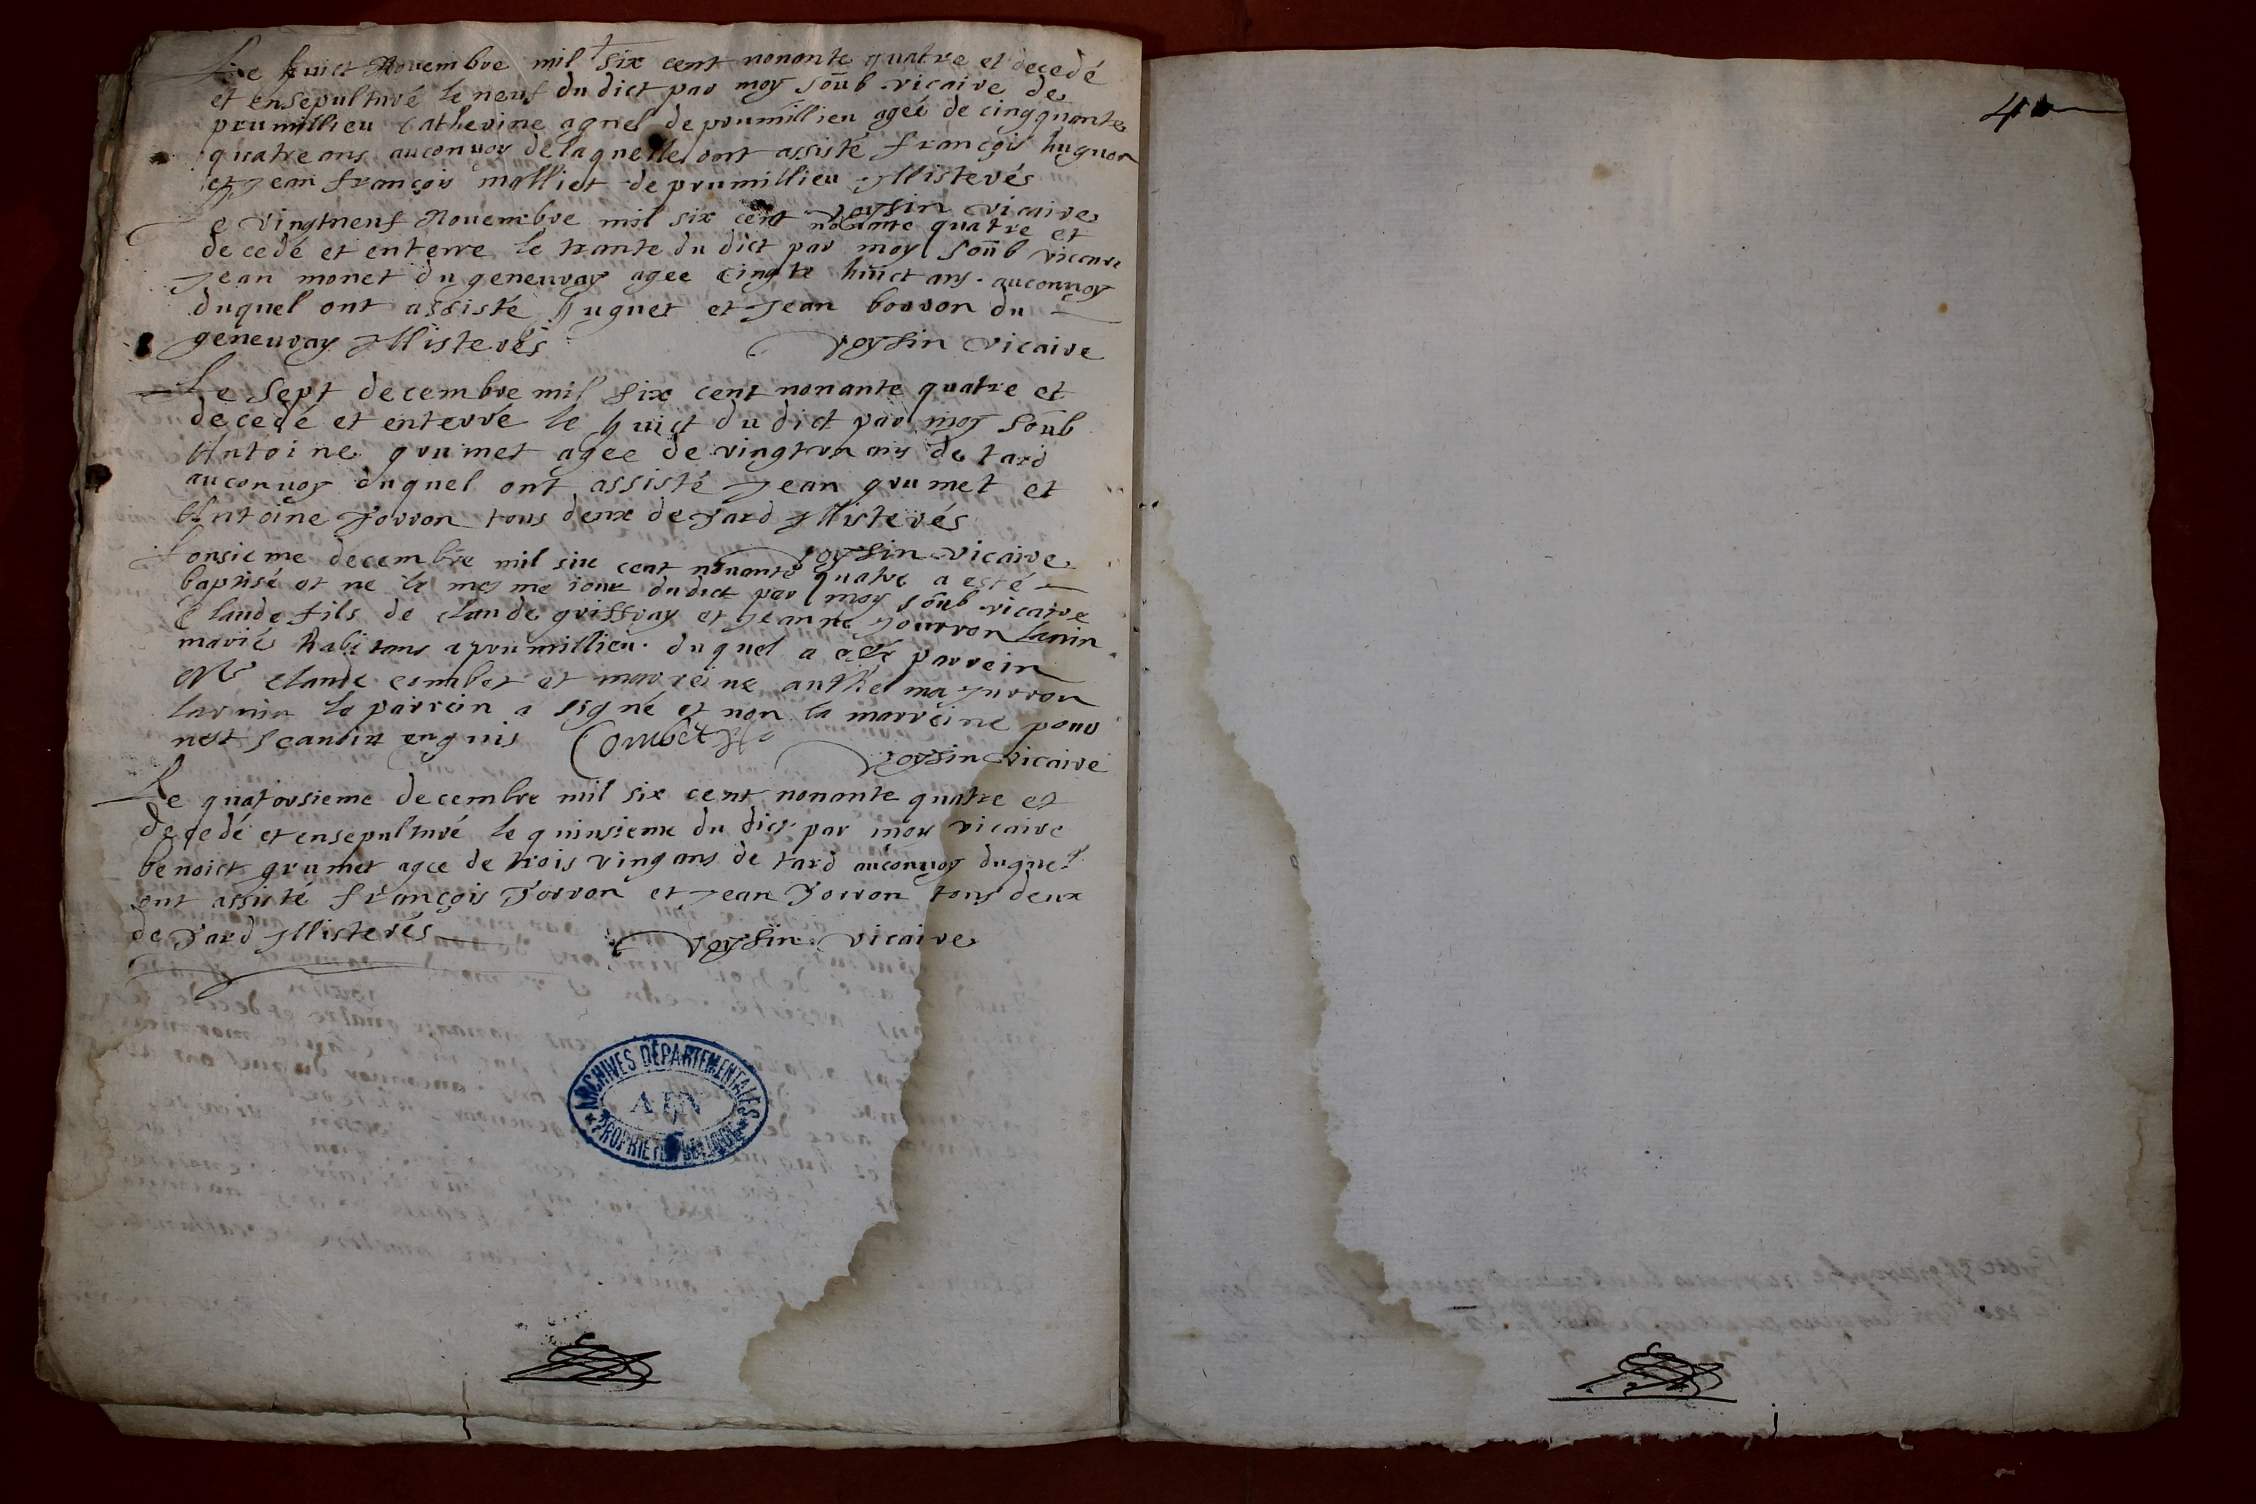 Le huict Novembre mil six cent nonante quatre et decedé
et ensepulturé le neuf du dict par moy soub vicaire de
prumillieu catherine agnel de prumillieu ageé de cinqquante
quatre ans auconvoy de laquelle ont assisté françois huguon
et Jean françois molliet de prumillieu Illisterés
voysin vicaire
Le vingtneuf Novembre mil six cent nonante quatre et
decedé et enterre le trante du dict par moy soub viccaire
Jean monet du geneuvay agee cinqte huict ans auconvoy
duquel ont assisté huguet et Jean borron du
geneuvay Illisterés voysin vicaire
Le sept decembre mil six cent nonante quatre et
decedé et enterré le huict du dict par moy soub
Antoine grumet agee de vingt un ans de tard
auconvoy duquel ont assisté Jean grumet et
Antoine Jorron tous deux de Jard Illisterés
voysin vicaire
Lonsieme decembre mil six cent nonante quatre a esté
baptisé et ne le mesme iour dudict par moy soub vicaire
Claude fils de claude griffray et Jeanne Jourron
marié habitans a prumillieu duquel a esté parrein
Mre claude combet et marreine anthelma Jurron
le parrein a signé et non la marreine pour
enquis Combet
voysin vicaire
Le quatorsieme decembre mil six cent nonante quatre et
decedé et ensepulturé le quinsieme du dict par moy vicaire
benoict grumet agee de trois ving ans de tard auconvoy duquel
ont assisté françois Jorron et Jean Jorron tous deux
de Jard Illisterés voysin vicaire
ARCHIVES DÉPARTEMENTALES
AIN
PROPRIÉTÉ PUBLIQUE
4